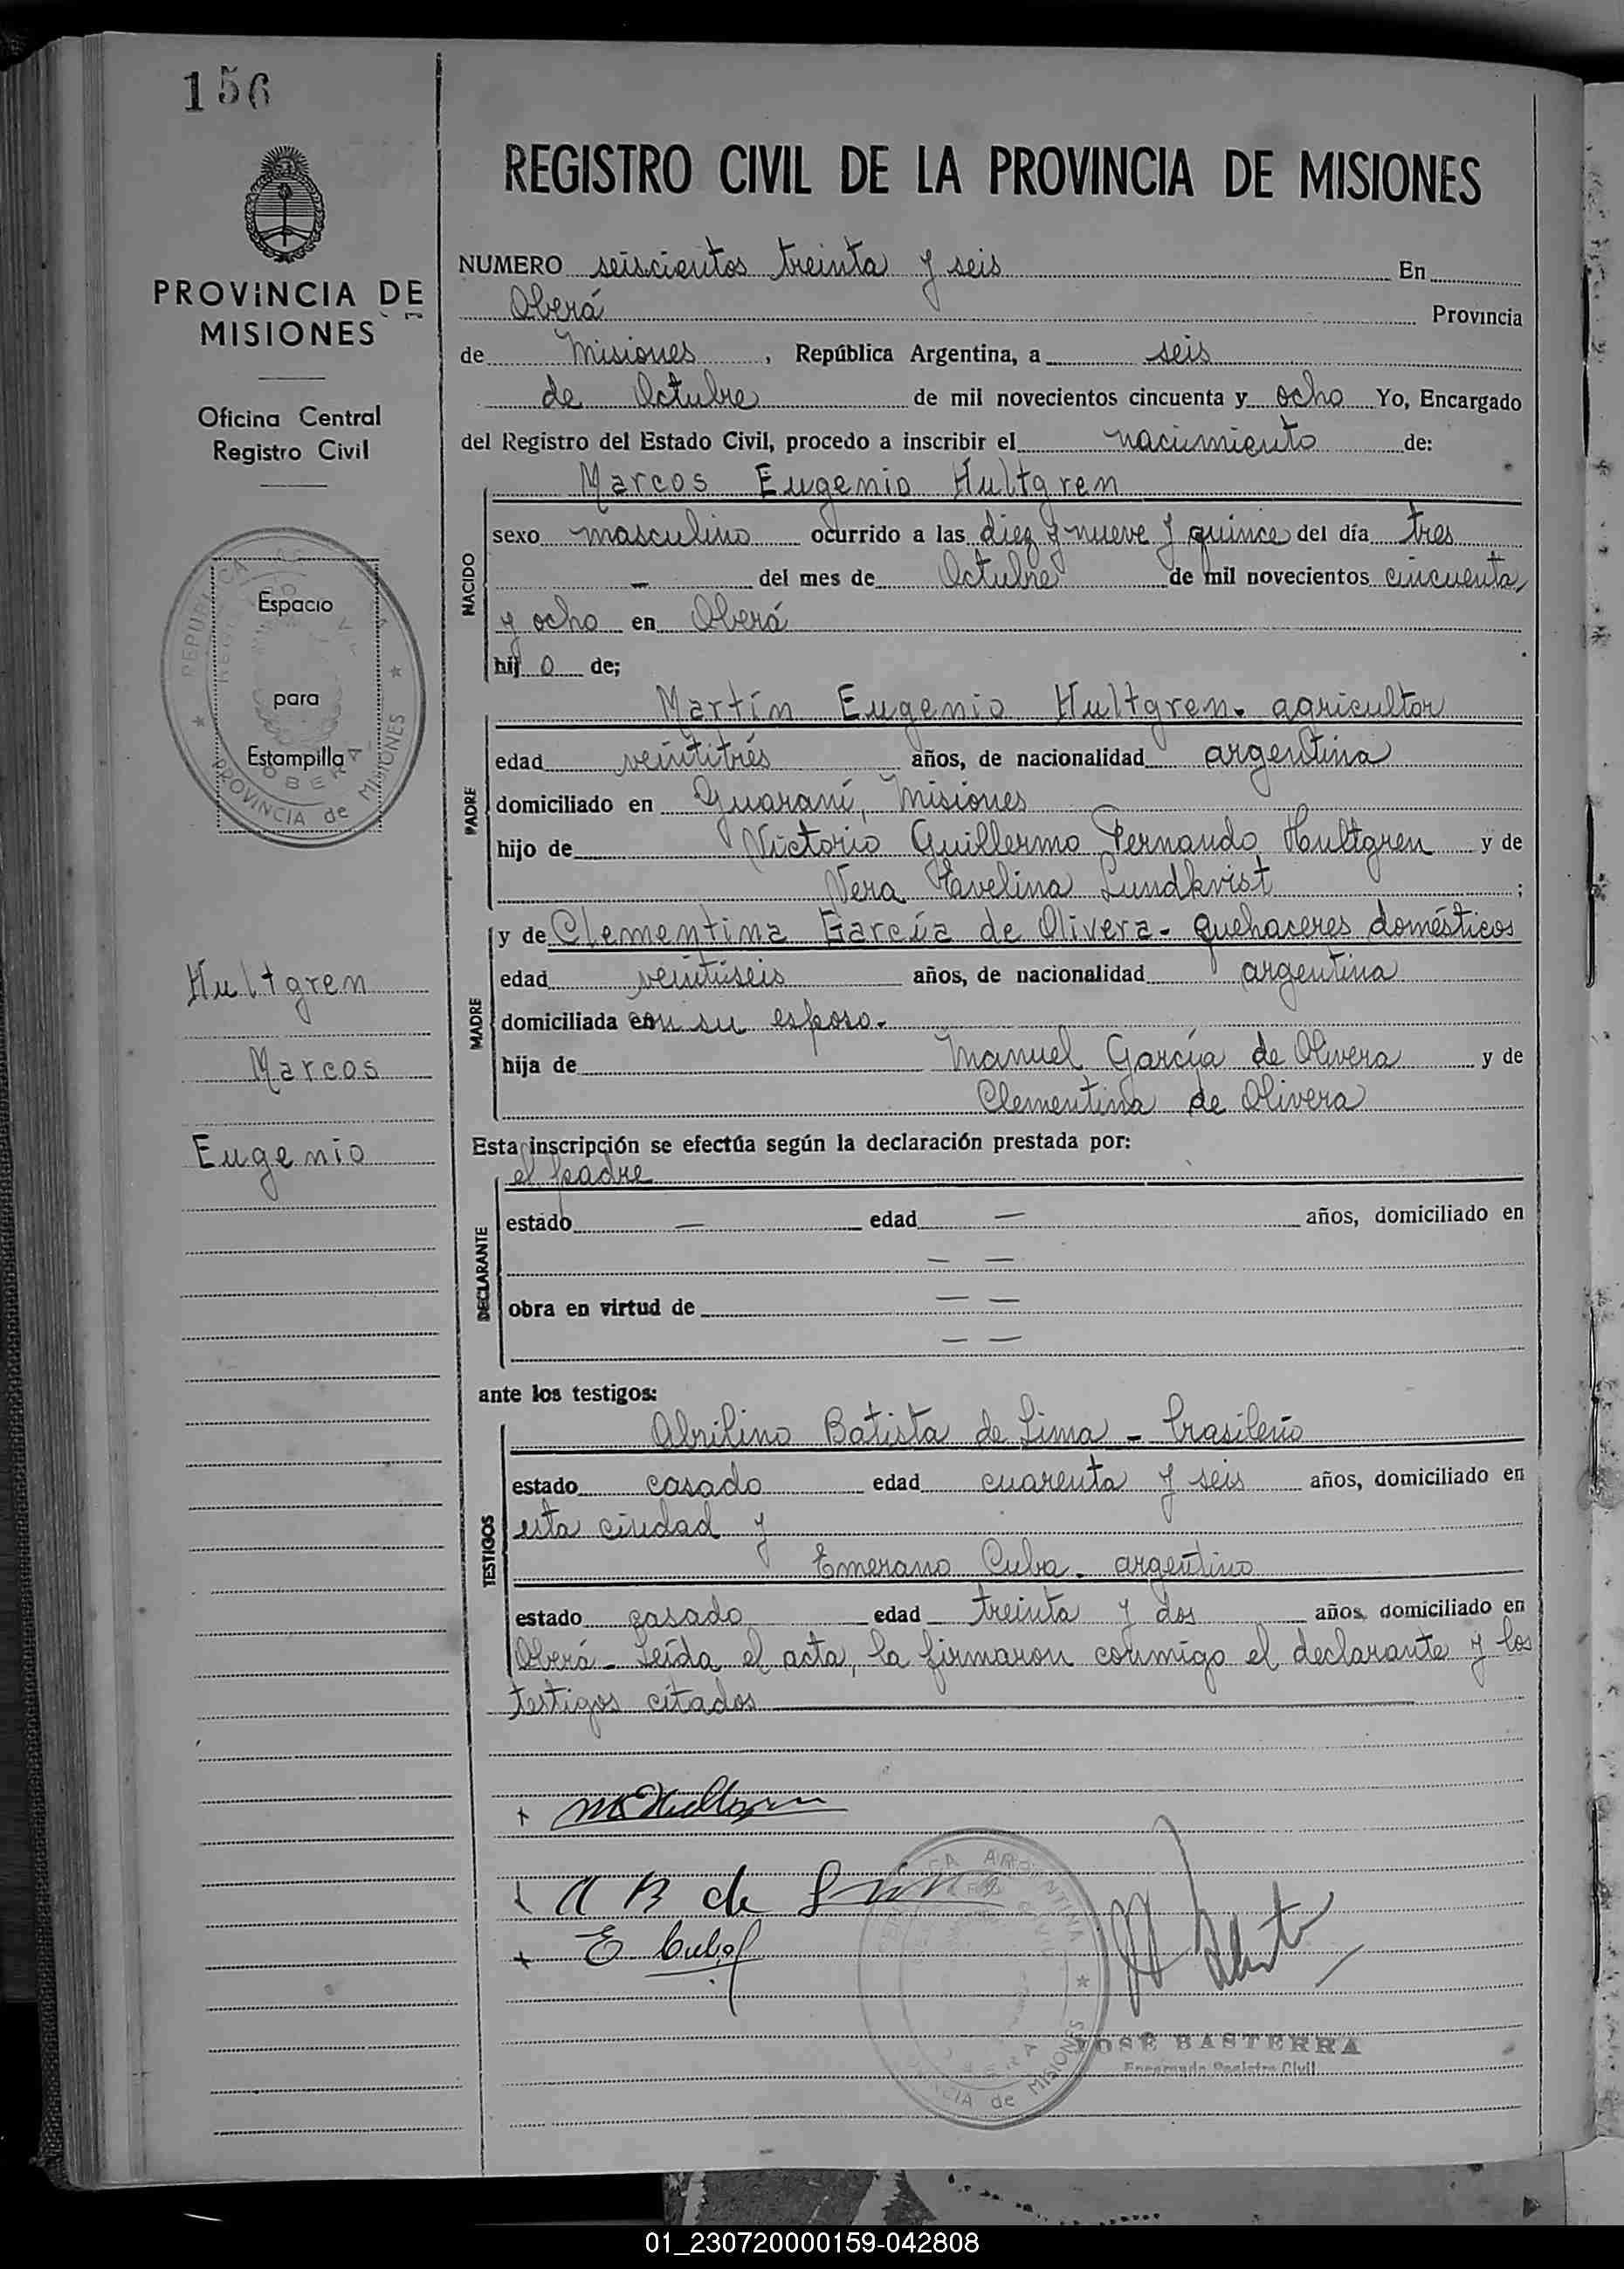 156
PROVINCIA DE
MISIONES
Oficina Central
Registro Civil
REPUBLICA
Espacio
para
Estampilla
OBERA
PROVINCIA de MISIONES
Hultgren
Marcos
Eugenio
REGISTRO CIVIL DE LA PROVINCIA DE MISIONES
NUMERO seiscientos treinta y seis En
Oberá Provincia
de Misiones, República Argentina, a seis
de Octubre de mil novecientos cincuenta y ocho Yo, Encargado
del Registro del Estado Civil, procedo a inscribir el nacimiento de:
NACIDO
Marcos Eugenio Hultgren
sexo masculino ocurrido a las diez y nueve y quince del día tres
— del mes de Octubre de mil novecientos cincuenta
y ocho en Oberá
hijo de;
PADRE
Martín Eugenio Hultgren - agricultor
edad veintitrés años, de nacionalidad argentina
domiciliado en Guaraní, Misiones
hijo de Victorio Guillermo Fernando Hultgren y de
Vera Evelina Lundkvist ;
MADRE
y de Clementina García de Olivera - quehaceres domésticos
edad veintiseis años, de nacionalidad argentina
domiciliada con su esposo.-
hija de Manuel García de Olivera y de
Clementina de Olivera
Esta inscripción se efectúa según la declaración prestada por:
DECLARANTE
el padre
estado — edad — años, domiciliado en
— —
obra en virtud de — —
— —
ante los testigos:
TESTIGOS
Abrilino Batista de Lima - brasileño
estado casado edad cuarenta y seis años, domiciliado en
esta ciudad y
Emerano Cuba - argentino
estado casado edad treinta y dos años, domiciliado en
Oberá - Leída el acta, la firmaron conmigo el declarante y los
testigos citados
A B de Lima
E Cuba
JOSE BASTERRA
Encargado Registro Civil
MISIONES
01_230720000159-042808